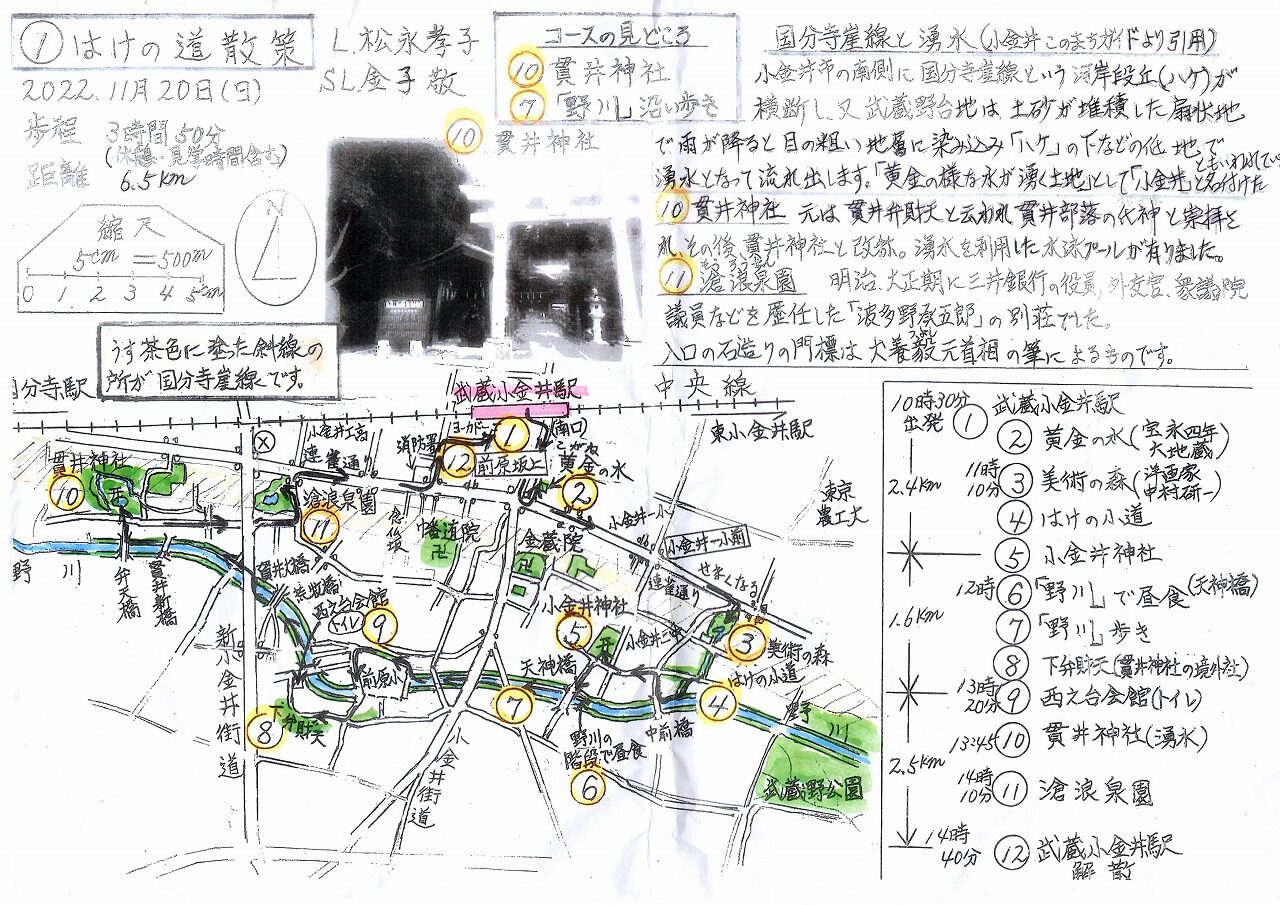 ① はけの道散策
2022.11月20日(日)
歩程 3時間50分
(休憩・見学時間含む)
距離 6.5km
L.松永孝子
SL金子敬
コースの見どころ
⑩ 貫井神社
⑦「野川」沿い歩き
⑩ 貫井神社
縮尺
5cm=500m
0 1 2 3 4 5cm
N
うす茶色に塗った斜線の
所が国分寺崖線です。
国分寺崖線と湧水(小金井このまちガイドより引用)
小金井市の南側に国分寺崖線という河岸段丘(ハケ)が
横断し、又武蔵野台地は土砂が堆積した扇状地
で雨が降ると目の粗い地層に染み込み「ハケ」の下などの低地で
湧水となって流れ出します。「黄金の様な水が湧く土地」として「小金井」と名付けた
ともいわれてい
⑩ 貫井神社 元は貫井弁財天と云われ貫井部落の代神と崇拝さ
れ、その後貫井神社と改称。湧水を利用した水泳プールが有りました。
⑪ 滄浪泉園 明治、大正期に三井銀行の役員、外交官、衆議院
そうろうせん
議員などを歴任した「波多野承五郎」の別荘でした。
入口の石造りの門標は犬養毅元首相の筆によるものです。
つよし
国分寺駅
武蔵小金井駅
中央線
東小金井駅
ヨーカドー
①
(南口)
小金井工高
連雀通り
消防署
⑫
前原坂上
こがね
黄金の水
②
貫井神社
⑩
滄浪泉園
⑪
念仏坂
中番道院
金蔵院
小金井一小
小金井一小前
連雀通り
せまくなる
東京
農工大
野川
弁天橋
貫井新橋
貫井大橋
西之台会館
(トイレ)
⑨
小金井神社
⑤
小金井二中
③
美術の森
はけの小道
④
天神橋
⑦
前原小
⑧
下弁財天
新小金井街道
小金井街道
野川の
階段で昼食
⑥
中前橋
野川
武蔵野公園
10時30分
出発 ① 武蔵小金井駅
② 黄金の水(宝永四年
六地蔵)
2.4km
11時
10分 ③ 美術の森(洋画家
中村研一)
④ はけの小道
⑤ 小金井神社
12時 ⑥「野川」で昼食(天神橋)
1.6km
⑦「野川」歩き
⑧ 下弁財天(貫井神社の境外社)
13時
20分 ⑨ 西之台会館(トイレ)
13:45 ⑩ 貫井神社(湧水)
2.5km
14時
10分 ⑪ 滄浪泉園
14時
40分 ⑫ 武蔵小金井駅
解散